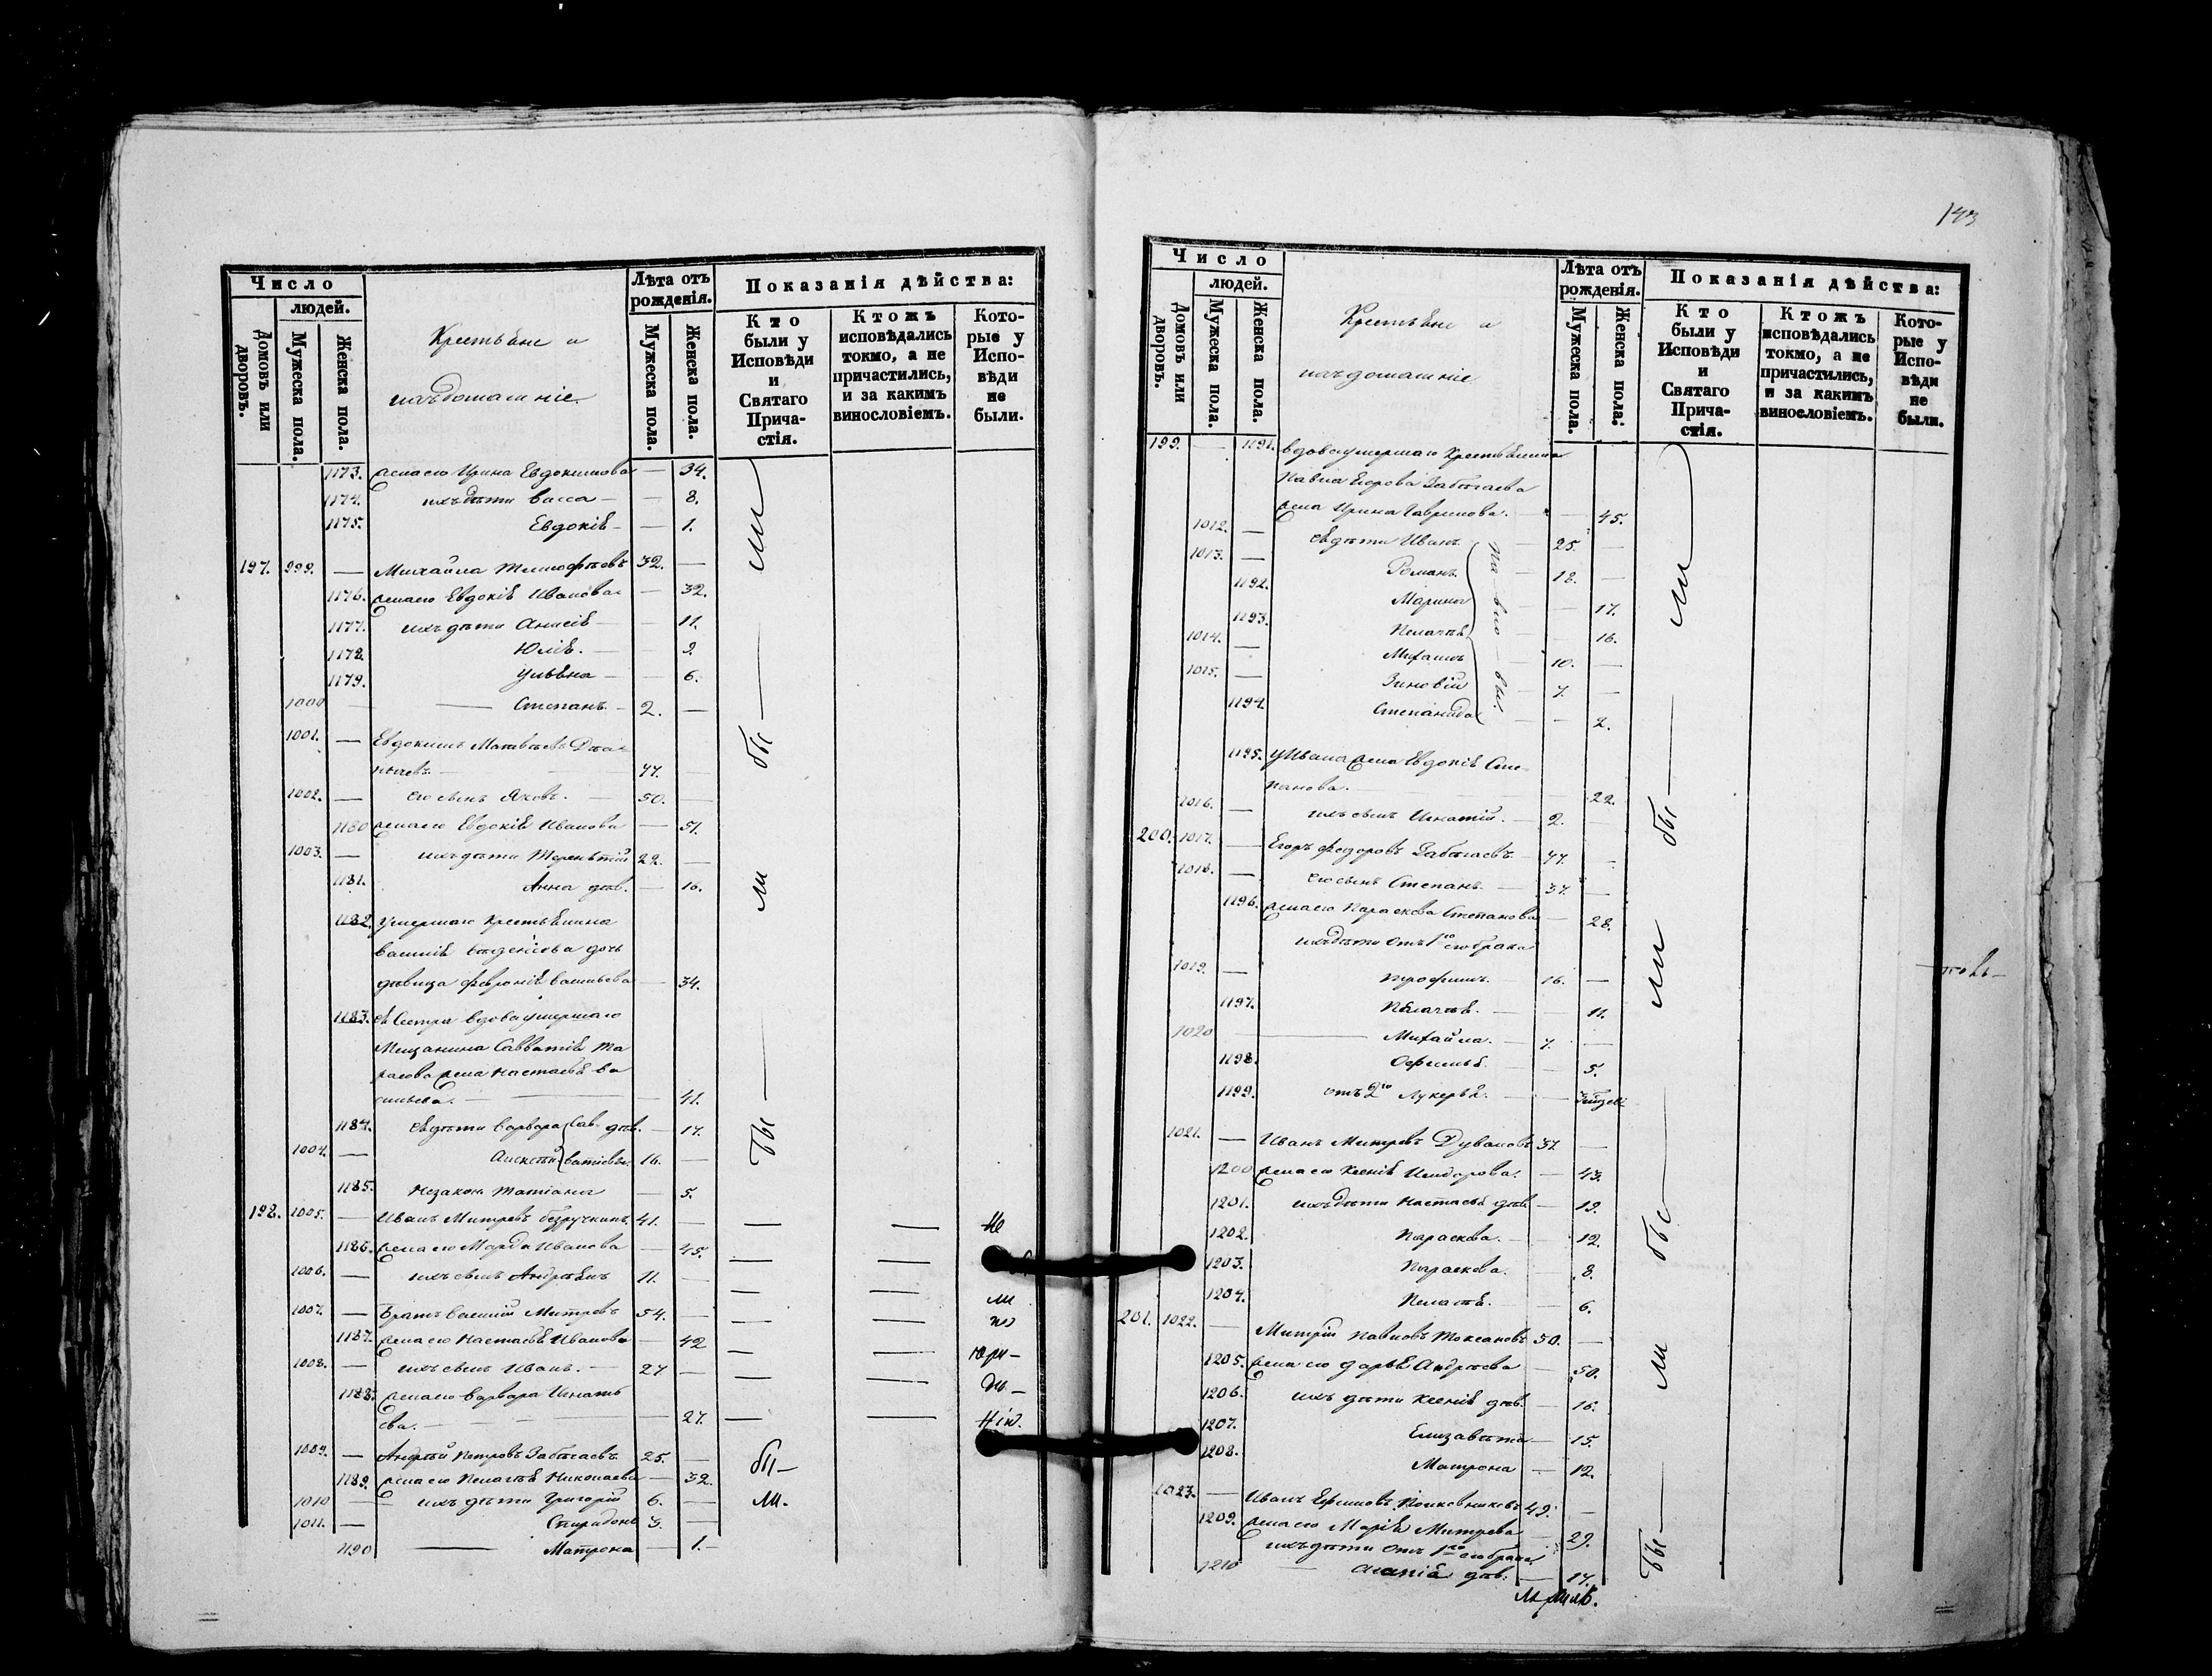 Число
людей.
Домовъ или дворовъ.
Мужеска пола.
Женска пола.
Крестьяне и
ихъ домашніе.
Лѣта отъ рожденія.
Мужеска пола.
Женска пола.
Показанія дѣйства:
Кто были у Исповѣди и Святаго Причастія.
Ктожъ исповѣдались токмо, а не причастились, и за какимъ винословіемъ.
Которые у Исповѣди не были.
1173. жена его Ирина Евдокимова — 34.
1174. ихъ дѣти Васса — — 8.
1175. Евдокія — — 1.
197. 999. — Михайла Тимофѣевъ 32. —
1176. жена его Евдокія Иванова — 32.
1177. ихъ дѣти Анисія — — 11.
1178. Юлія. — — 9.
1179. Ульяна — — 6.
1000 — — Степанъ. — 2. —
1001. — Евдокимъ Матвѣевъ
77. —
1002. — его сынъ Яковъ. — 50. —
1180 жена его Евдокія Иванова — 51.
1003. — ихъ дѣти Терентій 22. —
1181. Анна дѣв. — 16.
1182. Умершаго крестьянина
дочь
дѣвица Февронія Васильева — 34.
1183. ея сестра вдова умершаго
Мещанина Савватія Та
расова жена Настасья Ва
сильева. — — 41.
1184. ея дѣти Варвара Сав- дѣв. — 17.
1004. — Алексѣй ватіевы. 16. —
1185. Незакон. Татіана — 5.
198. 1005. — Иванъ Митревъ Безручкинъ. 41. — — — Не
1186. жена его Марѳа Иванова — 45. — —
1006. — ихъ сынъ Андреянъ 11. — — — ли
1007. — Братъ Василій Митревъ 54. — — — по
1187. жена его Настасья Иванова — 42 — —
1008. — ихъ сынъ Иванъ. — 27 —
1188. жена его Варвара Игнать
ева. — — 27. — — нію.
1009. — Андрей Петровъ Забѣгаевъ 25. — бы —
1189. жена его Пелагѣя Николаева — 32.
1010 — ихъ дѣти Григорій 6. — ли.
1011. — Спиридонъ 3. —
1190 — Матрона — 1. —
Бы — ли бы — ли
143
Число
людей.
Домовъ или дворовъ.
Мужеска пола.
Женска пола.
Крестьяне и
ихъ домашніе
Лѣта отъ рожденія.
Мужеска пола.
Женска пола.
Показанія дѣйства:
Кто были у Исповѣди и Святаго Причастія.
Ктожъ исповѣдались токмо, а не причастились, и за какимъ винословіемъ.
Которые у Исповѣди не были.
199. — 1191. вдова умершаго крестьянина
Павла Егорова Забѣгаева
жена Ирина Гаврилова. — 45.
1012. — ея дѣти Иванъ — 25. —
1013. — Романъ — 18. —
1192. Марина — 17.
1193. Пелагѣя — 16.
1014. — Михаилъ 10. —
1015. — Зиновій — 7. —
1194. Степанида — — 2.
Па — вло — вы.
1195. у Ивана жена Евдокія Сте
панова. — — 22.
1016. — ихъ сынъ Игнатій. — 2. —
200. 1017. — Егоръ Федоровъ Забѣгаевъ — 77. —
1018. — его сынъ Степанъ. — 37. —
1196. жена его Параскова Степанова — 28.
ихъ дѣти отъ 1го его брака
1019. — Трофимъ. — 16. —
1197. Пелагѣя. — — 11.
1020 — — Михайла. — 7. —
1198. — — 5.
1199. отъ 2го Лукерья. —
1021. — Иванъ Митревъ Дувановъ 37 —
1200 жена его Ксенія Исидорова. — 43.
1201. ихъ дѣти Настасья дѣв. — 19.
1202. Параскова. — 12.
1203. Параскова. — 8.
1204. Пелагѣя. — 6.
201. 1022. — Митрій Павловъ Токсановъ 50. —
1205. жена его Дарья Андреева — 50.
1206. ихъ дѣти Ксенія дѣв. — 16.
1207. Елизавета — 15.
1208. Матрона — 12.
1023. — Иванъ Ефимовъ Полковниковъ 49. —
1209. жена его Марія Митрева — 29.
ихъ дѣти отъ 1го его брака
1210 — дѣв. — 17.
Бы — ли бы — ли бы — ли